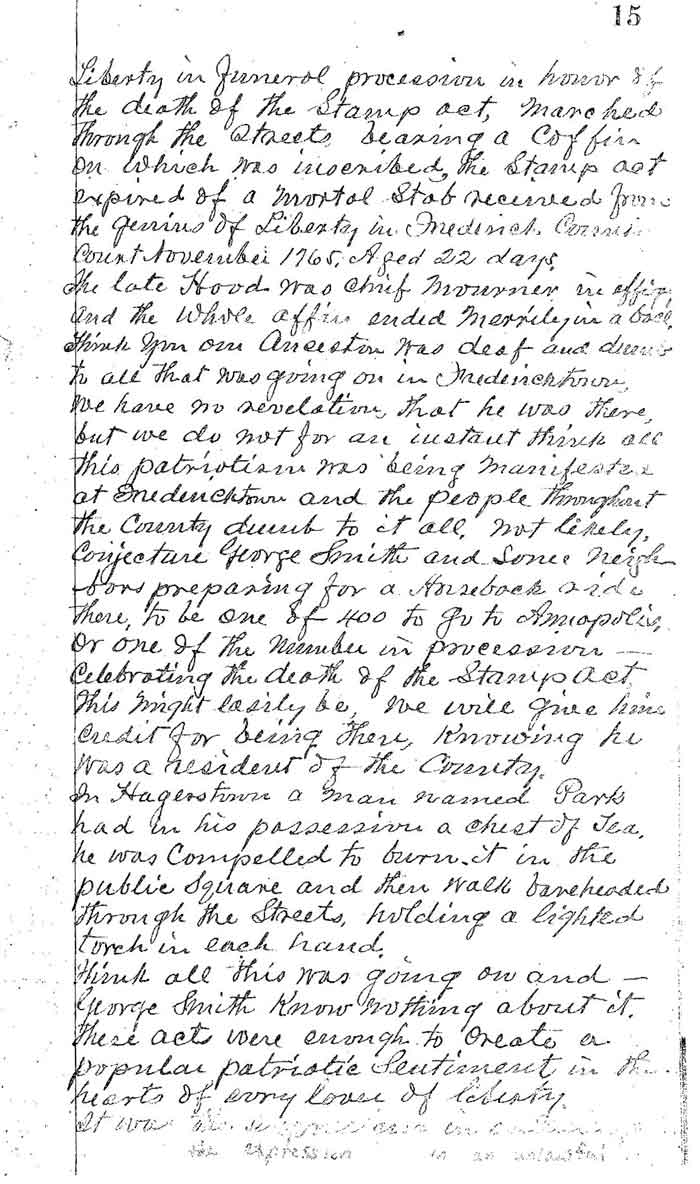 15
Liberty in Funeral procession in honor of
the death of the Stamp act, Marched
through the Streets bearing a Coffin
on which was inscribed, the Stamp act
expired of a Mortal Stab received from
the genius of Liberty in Frederick County
Court November 1765, Aged 22 days.
The late Hood was chief Mourner in effigy
and the Whole affir ended Merrily in a ball
Think You our Ancestor was deaf and dumb
to all that was going on in Fredericktown,
We have no revelation, that he was there,
but we do not for an instant think all
this patriotism was being Manifested
at Fredericktown and the people throughout
the County dumb to it all, not likely,
Conjecture George Smith and Some Neigh
-bors preparing for a Horseback ride
there, to be one of 400 to go to Annapolis,
or one of the Number in procession —
Celebrating the death of the Stamp Act
this Might easily be, We will give him
Credit for being there, Knowing he
was a resident of the County.
In Hagerstown a Man named Park
had in his possession a chest of Tea,
he was Compelled to burn it in the
public Square and then Walk bareheaded
through the Streets, holding a lighted
torch in each hand.
think all this was going on and —
George Smith Know Nothing about it.
these acts were enough to Create a
popular patriotic Sentiment in the
hearts of evry lover of liberty.
It was in
the expression in an unlawful